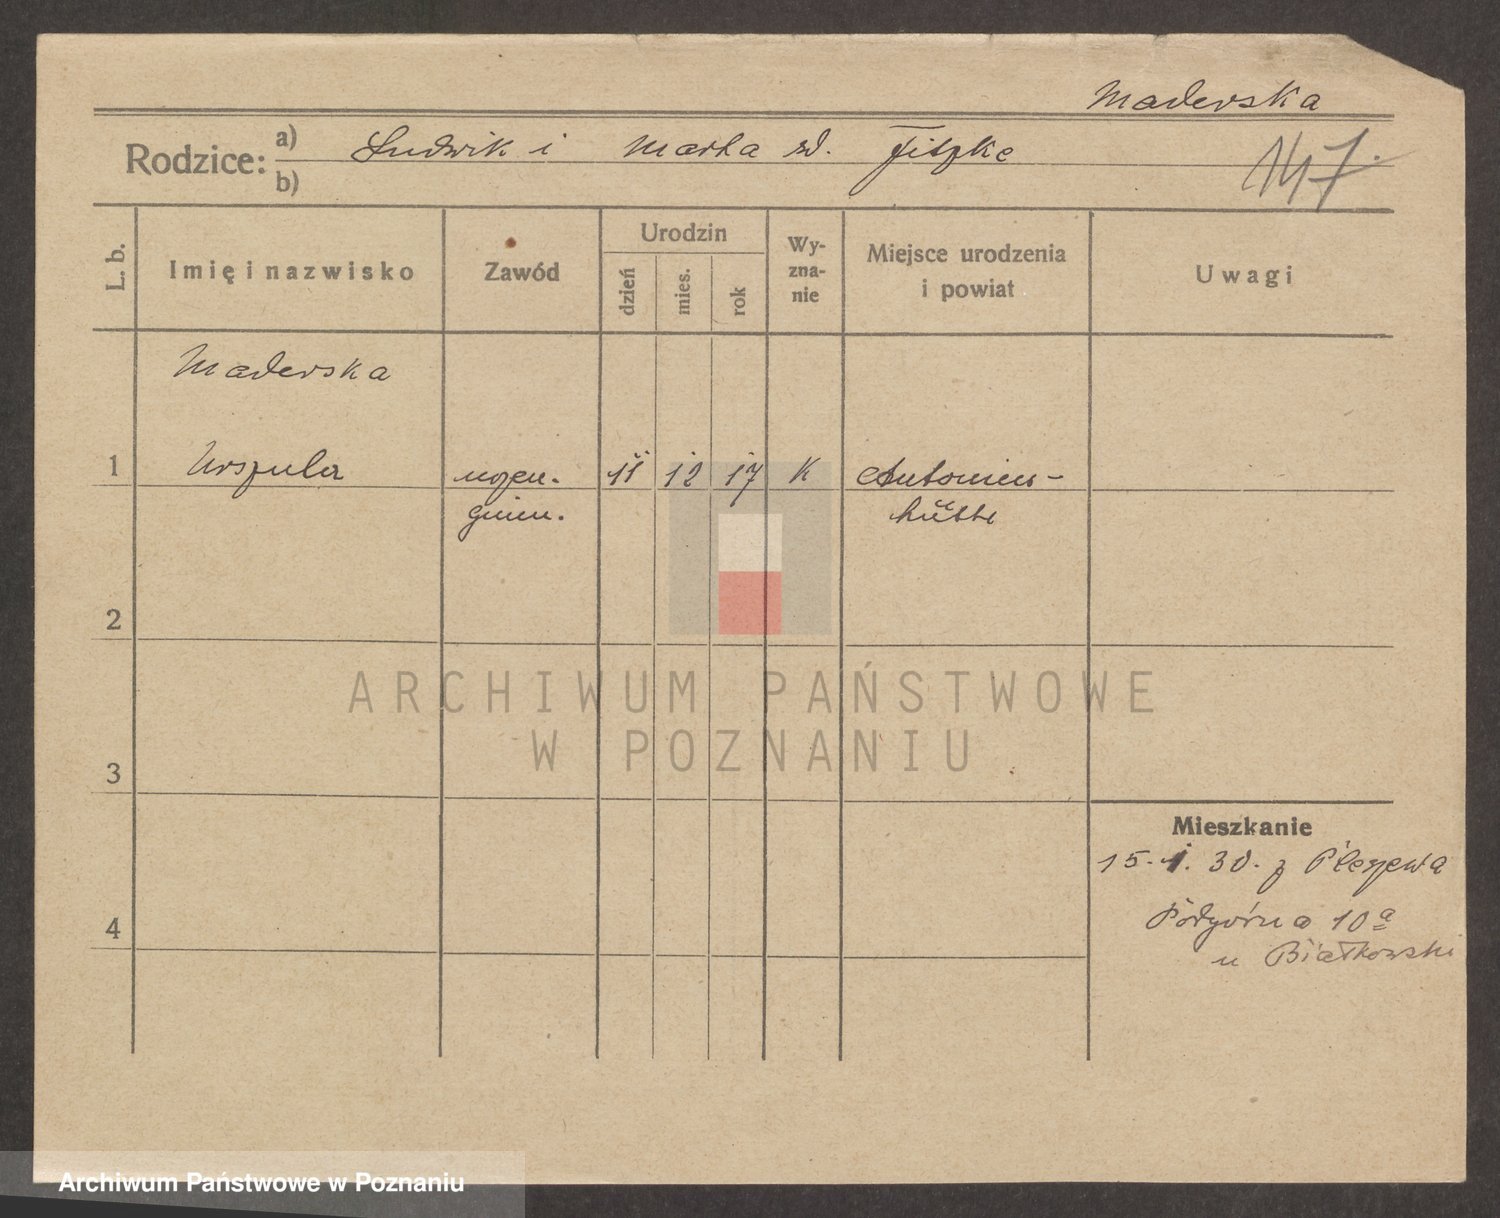 Maderska
Rodzice: a) Ludwik i Marta zd. Fitzke
b)
147.
L. b.
Imię i nazwisko
Zawód
Urodzin
dzień
mies.
rok
Wy-
zna-
nie
Miejsce urodzenia
i powiat
Uwagi
Maderska
1 Urszula uczen. 11 12 17 K Antonien-
gimn. hütte
2
3
4
Mieszkanie
15. 1. 30. z Pleszewa
Podgórna 10a
u Białkowski
ARCHIWUM PAŃSTWOWE
W POZNANIU
Archiwum Państwowe w Poznaniu